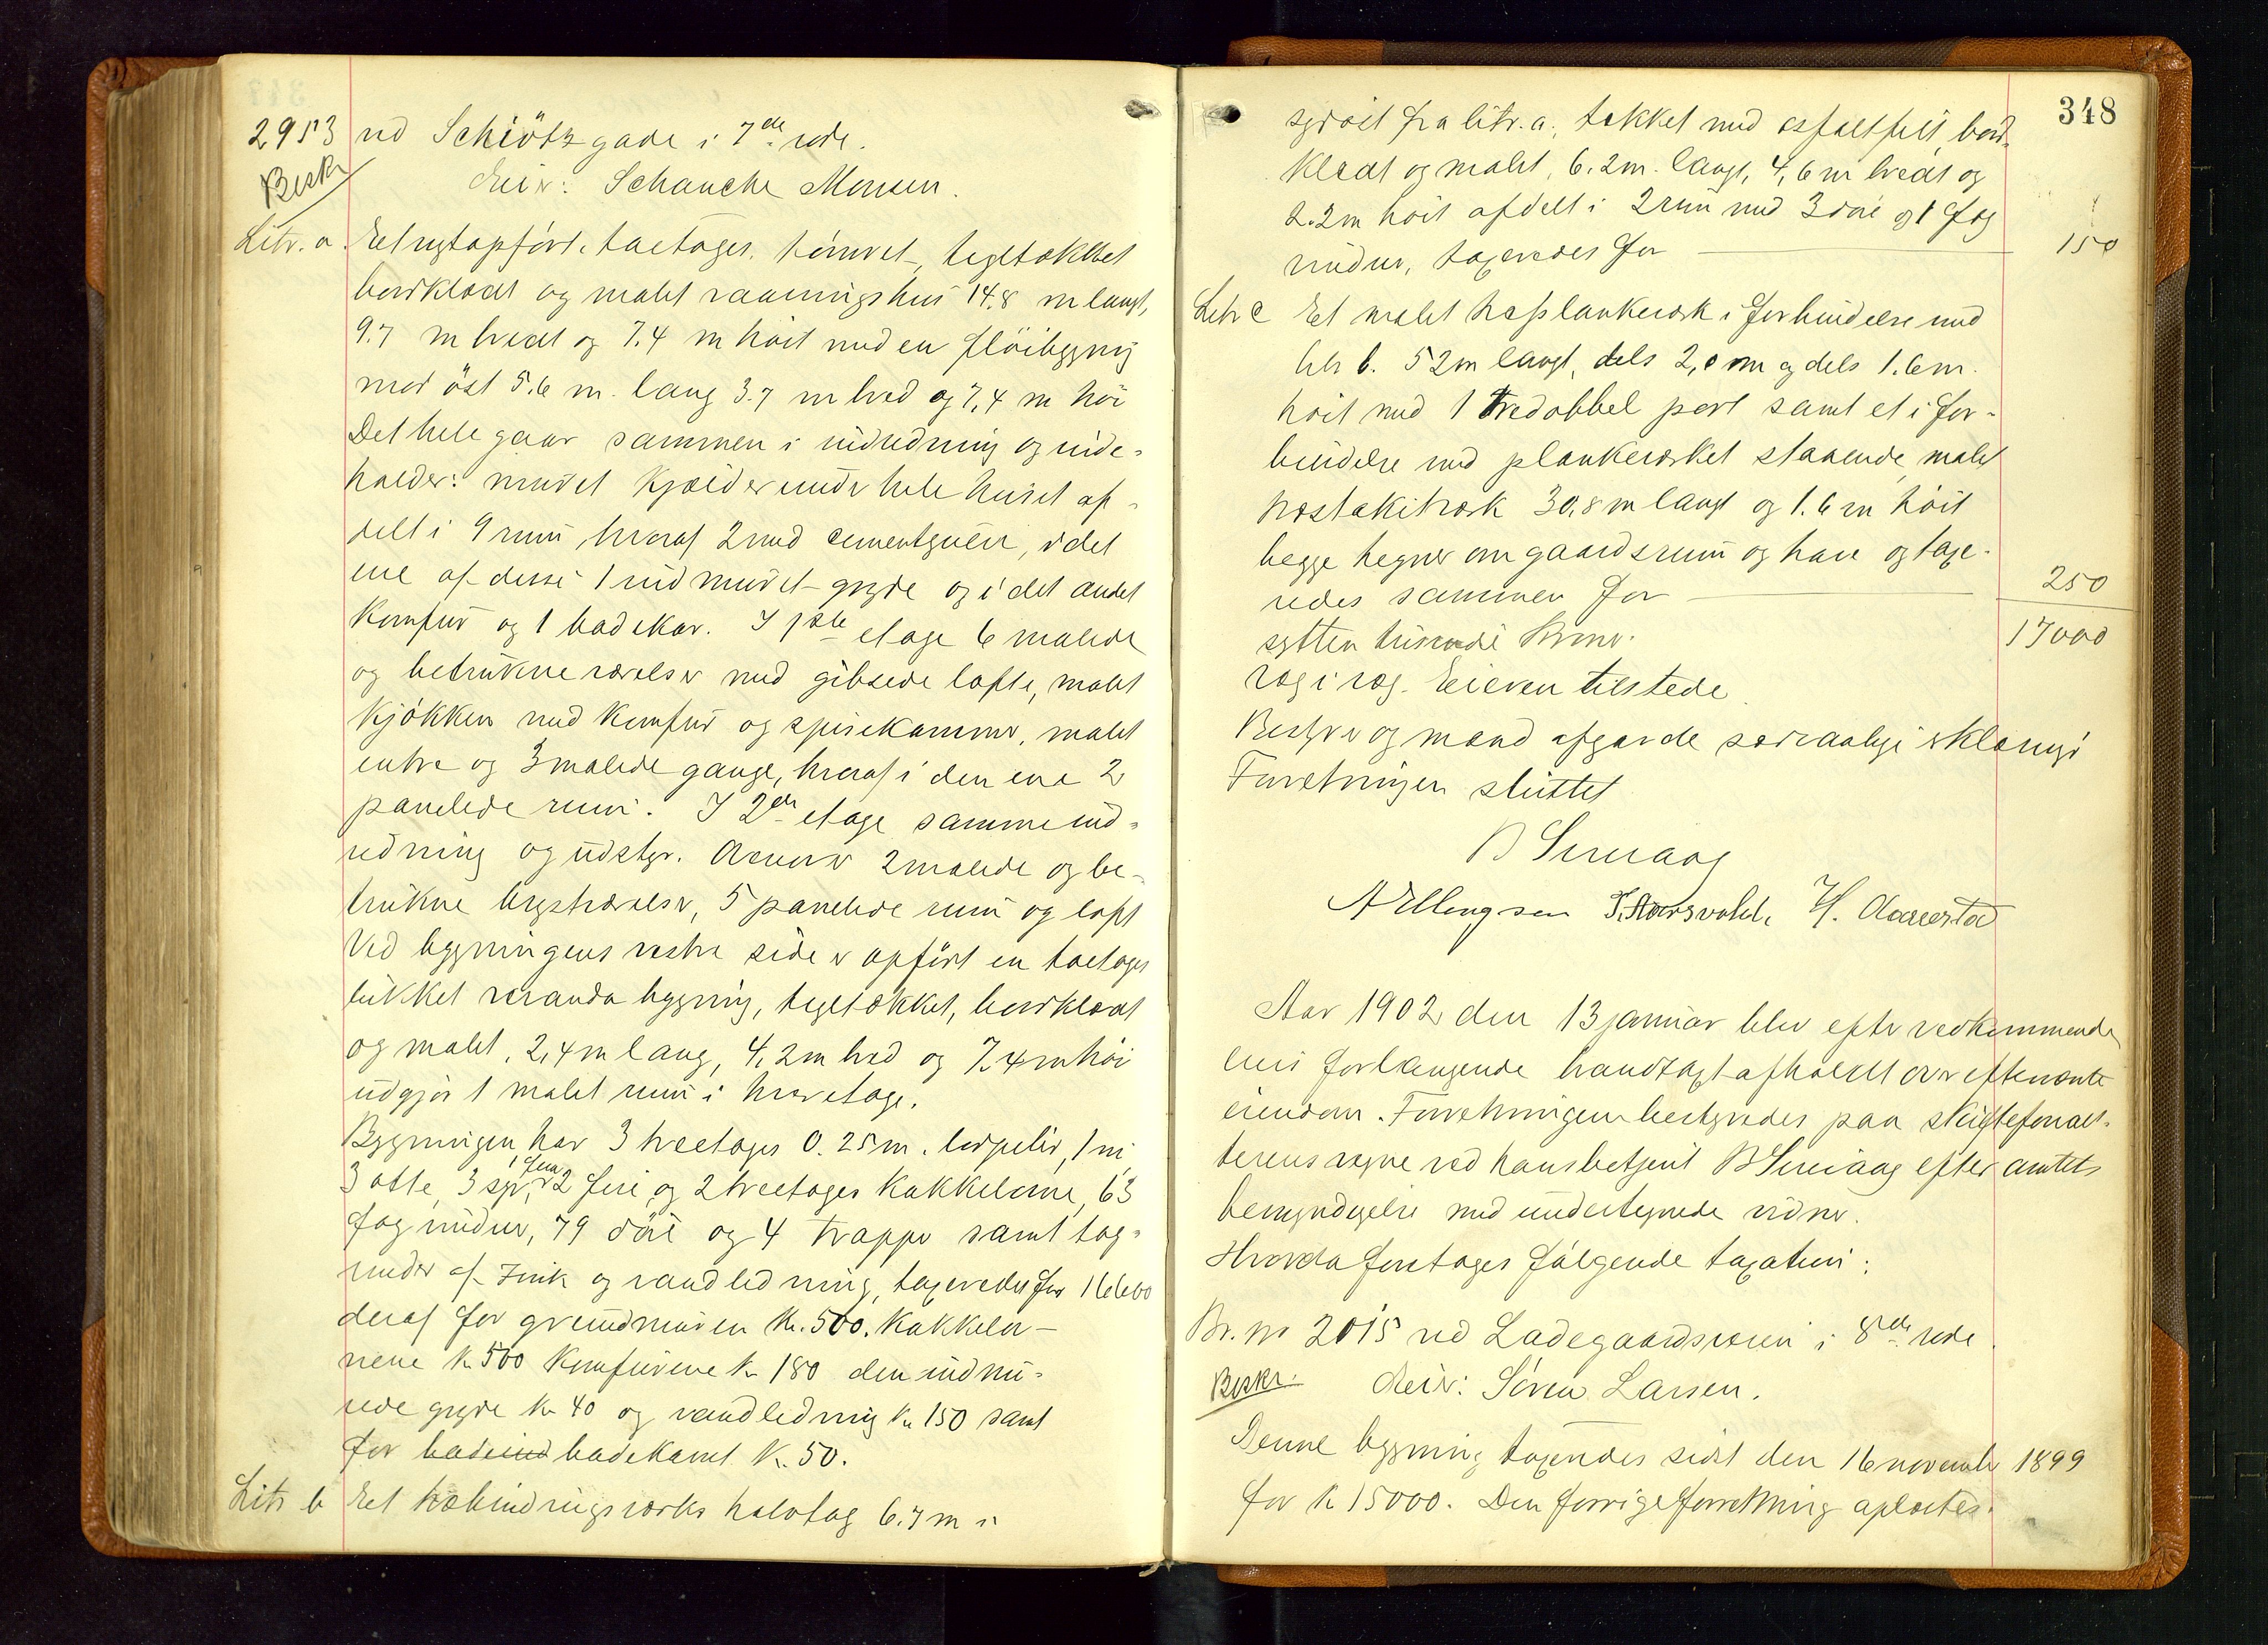 2953 ved Schiötzgade i 7de rode.
Beskr.
Eier: Schancke Monsen.
Litr. a. Et nytopfört, toetages, tömret, tegltækket
bordklædt og malet vaaningshus 14.8 m langt,
9.7 m bredt og 7.4 m höit med en flöibygning
mod öst 5.6 m. lang 3.7 m bred og 7,4 m höi
Det hele gaar sammen i indredning og inde-
holder: muret kjælder under hele huset af-
delt i 9 rum, hvoraf 2 med cementgulv, i det
ene af disse 1 indmuret gryde og i det andet
komfur og 1 badekar. I 1ste etage 6 malede
og betrukne værelser med gibsede lofte, malet
kjökken med komfur og spisekammer, malet
entre og 3 malede gange, hvoraf i den ene 2
panelede rum. I 2den etage samme ind-
redning og udstyr. Ovenover 2 malede og be-
trukne kvistværelser, 5 panelede rum og loft
Ved bygningens vestre side er opfört en toetages
lukket veranda bygning, tegltækket, bordklædt
og malet, 2,4 m lang, 4,2 m bred og 7.4 m höi
udgjör 1 malet rum i hver etage.
Bygningen har 3 treetages 0.25 m. lerpiber, 1 ni
3 otte, 3 syv, 2 fire og 2 treetages kakkelovne, 63
fem
fag vinduer, 79 döre og 4 trapper samt tag-
render af zink og vandledning, taxeredes for 16600
deraf for grundmuren Kr. 500. kakkelov-
nene kr 500 komfurene kr 180 den indmu-
rede gryde kr 40 og vandledning kr 150 samt
for badeind badekarret kr. 50.
Litr b Et træbindingsværks halvtag 6.7 m i
348
sydost fra litr. a., tækket med asfaltfilt, bord-
klædt og malet, 6.2 m. langt, 4,6 m bredt og
2.2 m höit afdelt i 2 rum med 3 döre og 1 fag
vinduer, taxeredes for 150
Litr c Et malet træplankeværk i forbindelse med
litr b. 52 m langt, dels 2,0 m og dels 1.6 m.
höit med 1 tredobbel port samt et i for-
bindelse med plankeværket staaende, malet
træstakitværk 30,8 m langt og 1.6 m höit
begge hegner om gaardsrum og have og taxe-
redes sammen for 250
sytten tusende kroner. 17000
Eieren tilstede.
Bestyrer og mænd afgav de sædvanlige erklæringer
Forretningen sluttet
B
A Ellingsen
Aar 1902 den 13 januar blev efter vedkommende
eiers forlangende brandtaxt afholdt over eftenævnte
eiendom. Forretningen bestyredes paa skifteforval-
terens vegne ved hans betjent B efter amtets
bemyndigelse med undertegnede vidner.
Hvorda foretoges fölgende taxation:
Br. no 2015 ved Ladegaardsveien i 8de rode.
Beskr.
Eier: Sören Larsen.
Denne bygning taxeredes sidst den 16 november 1899
for kr 15000. Den forrige forretning oplæstes.